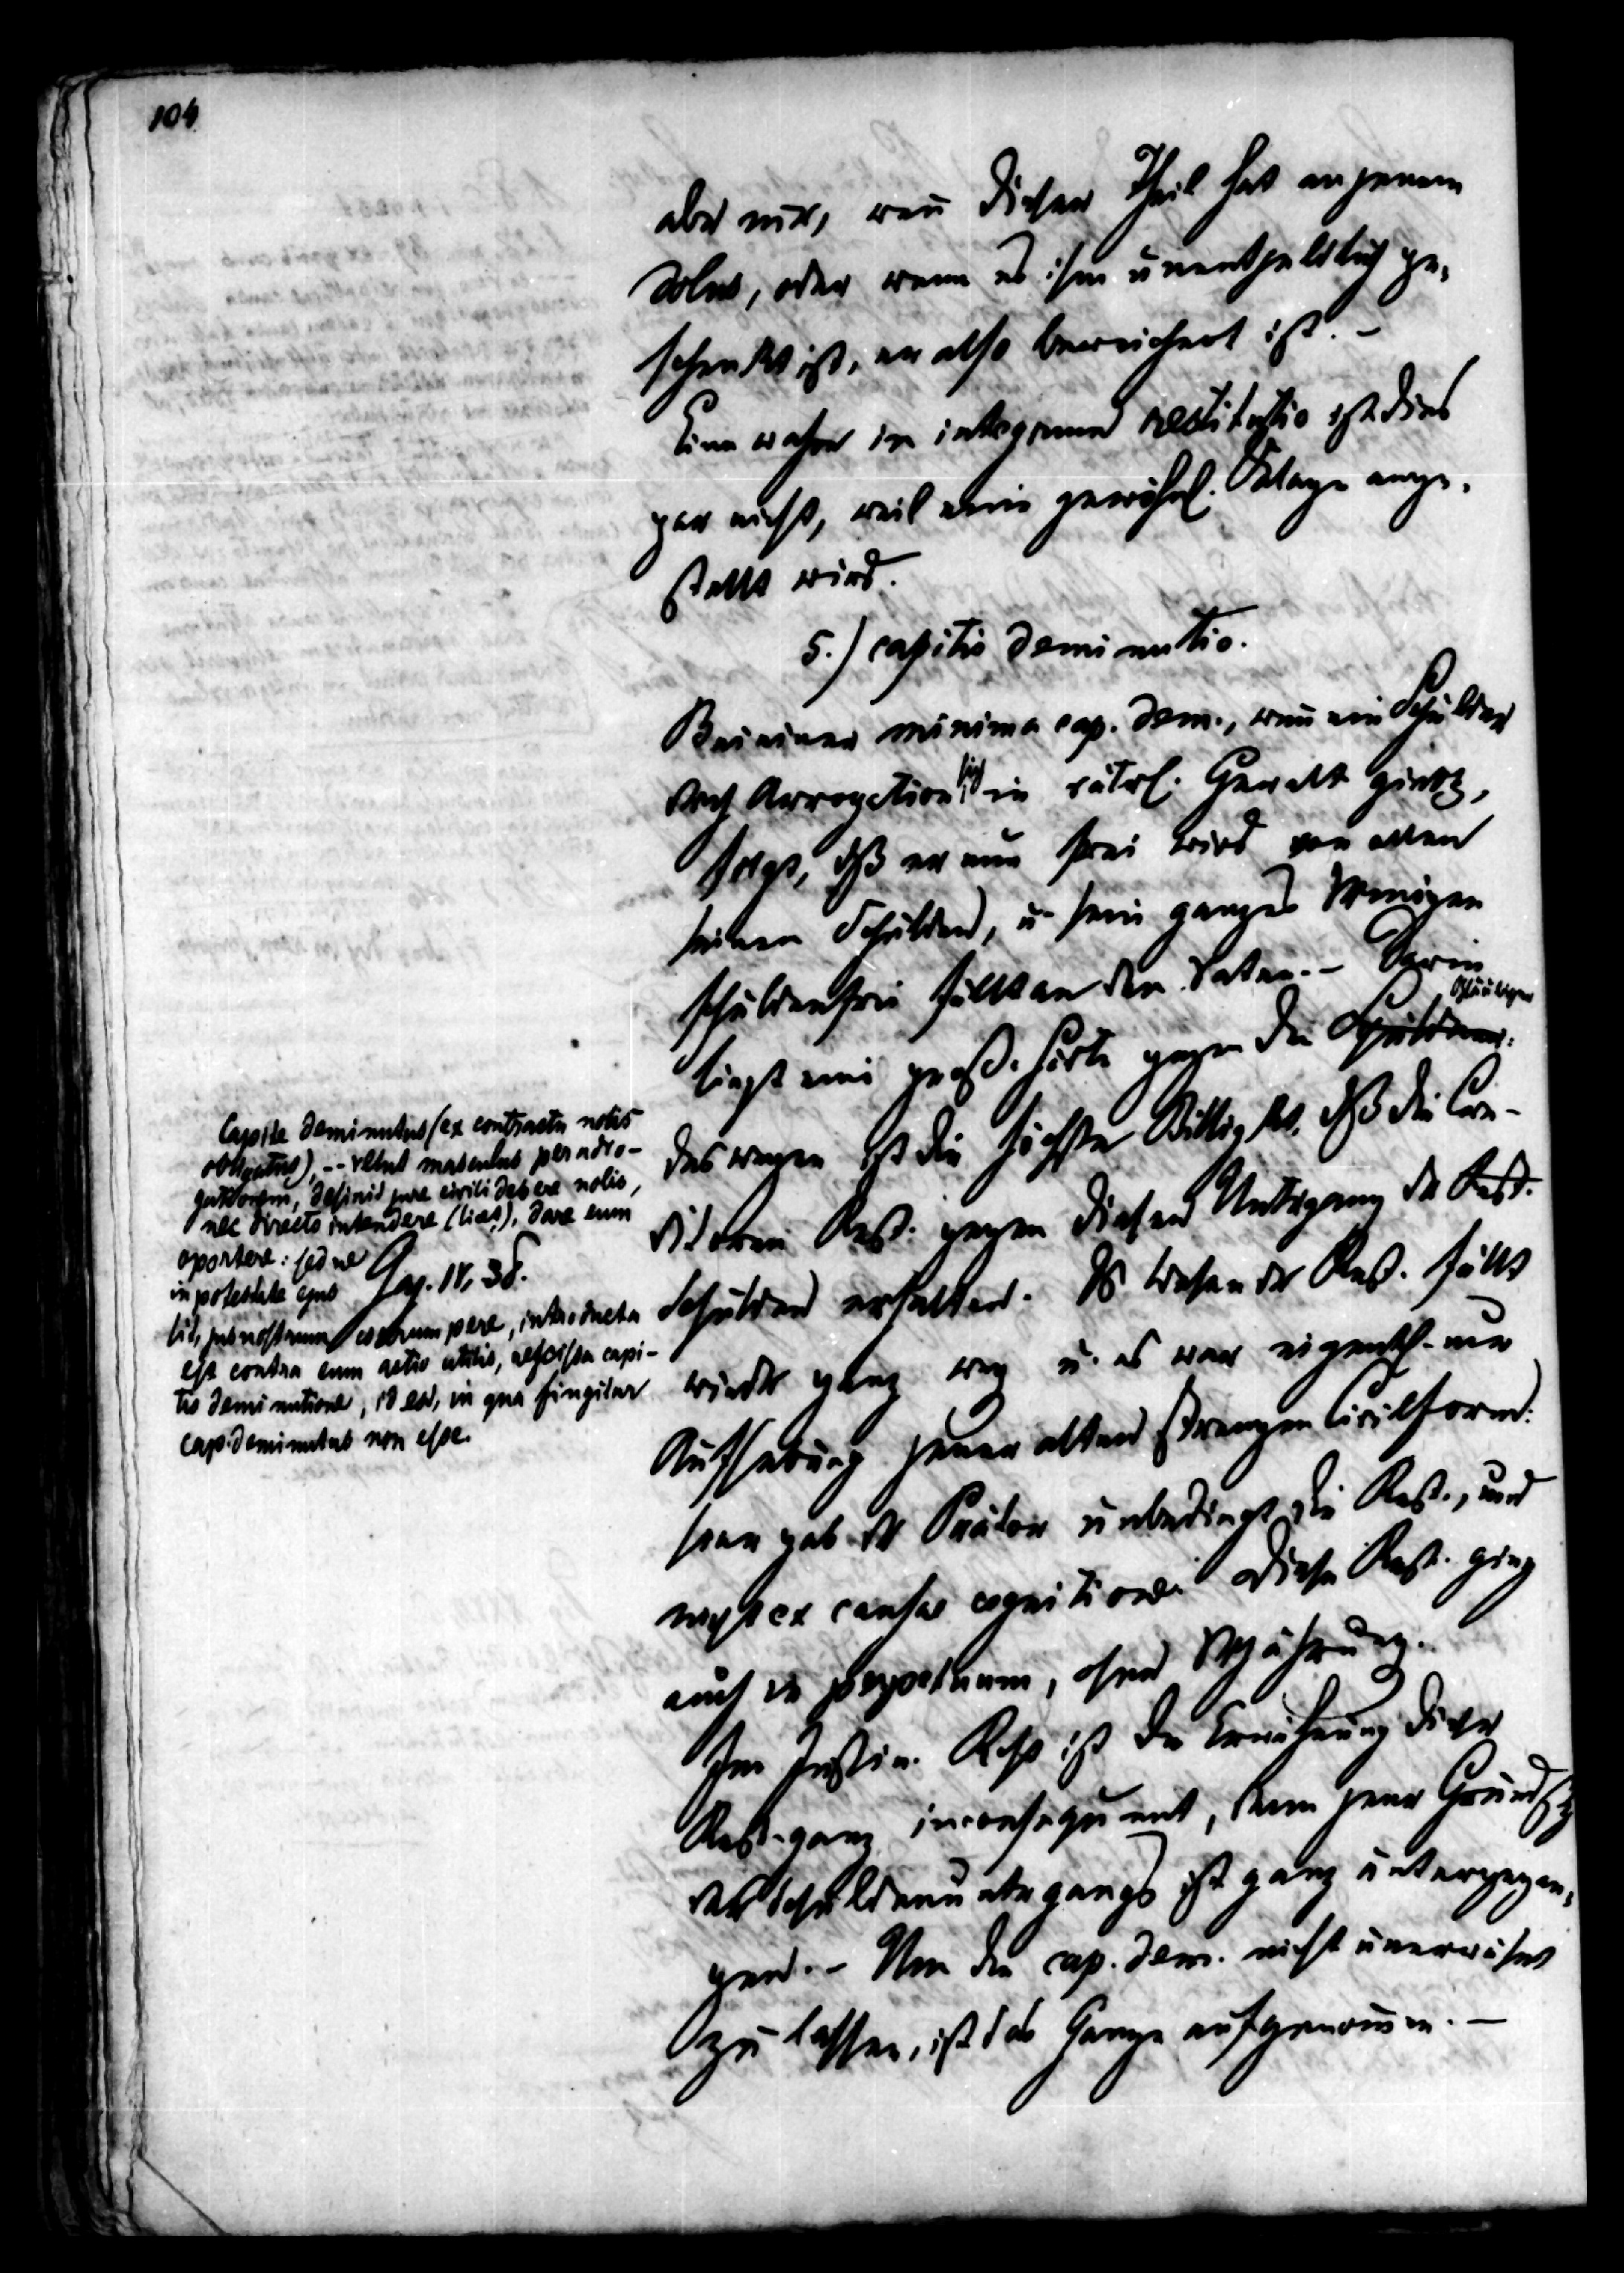 104.
aber nur, wenn dieser Theil hat an jenem
dolus, oder wenn es ihm unentgeldlich ge-
schenkt ist, er also bereichert ist. –
Eine wahre in integrum restitutio ist dies
gar nicht, weil eine gewöhnl. Klage ange-
stellt wird.
5.) capitis deminutio.
Bei einer minima cap. dem., wenn ein Schuldner
durch Arrogation sich in väterl. Gewalt giebt,
folgt, dß er nun frei wird von allen
seinen Schulden, u. sein ganzes Vermögen
schuldenfrei fällt an den Vater. – Darin
liegt eine große Härte gegen die Schuldner: Gläubiger
deswegen ist die höchste Billigkt. dß die Cre-
ditoren Rest. gegen diesen Untergang der
Schulden erhalten. Das Wesen der Rest. fällt
wieder ganz weg u. es war eigentl. nur
Aufhebung jener alten strengen Civilform:
hier gab der Prätor unbedingt die Rest., und
nicht ex causae cognitione. Diese Rest. ging
auch in perpetuum, ohne Verjährung.
Im Justin. Recht ist die Erwähnung dieser
Rest. ganz inconsequent, denn jener Grundsatz
des Schuldenuntergangs ist ganz untergegan-
gen. – Um die cap. dem. nicht unerwähnt
zu lassen, ist das Ganze aufgenommen. –
Capite deminutus (ex contractu nobis
obligatus), -- velut masculus per adro-
gationem, desinit jure civili debere nobis,
nec directo intendere (licet), dare eum
oportere: sed ne
in potestate ejus Gaj. IV, 38.
sit, jus nostrum corrumpere, introducta
est contra eum actio utilis, rescissa capi-
tis deminutione, id est, in qua fingitur
cap. deminutus non esse.